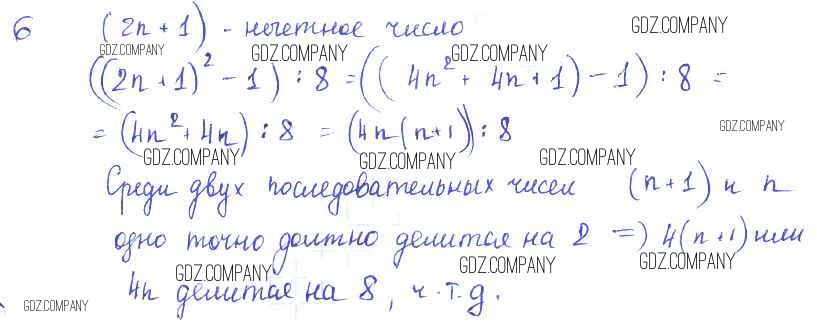 6 (2n + 1) - нечетное число GDZ.COMPANY
GDZ.COMPANY GDZ.COMPANY GDZ.COMPANY
((2n + 1)² - 1) : 8 = ((4n² + 4n + 1) - 1) : 8 =
= (4n² + 4n) : 8 = (4n(n+1)) : 8 GDZ.COMPANY
GDZ.COMPANY GDZ.COMPANY GDZ.COMPANY
Среди двух последовательных чисел (n+1) и n
одно точно должно делится на 2 => 4(n+1) или
GDZ.COMPANY GDZ.COMPANY GDZ.COMPANY
4n делится на 8, ч.т.д.
GDZ.COMPANY